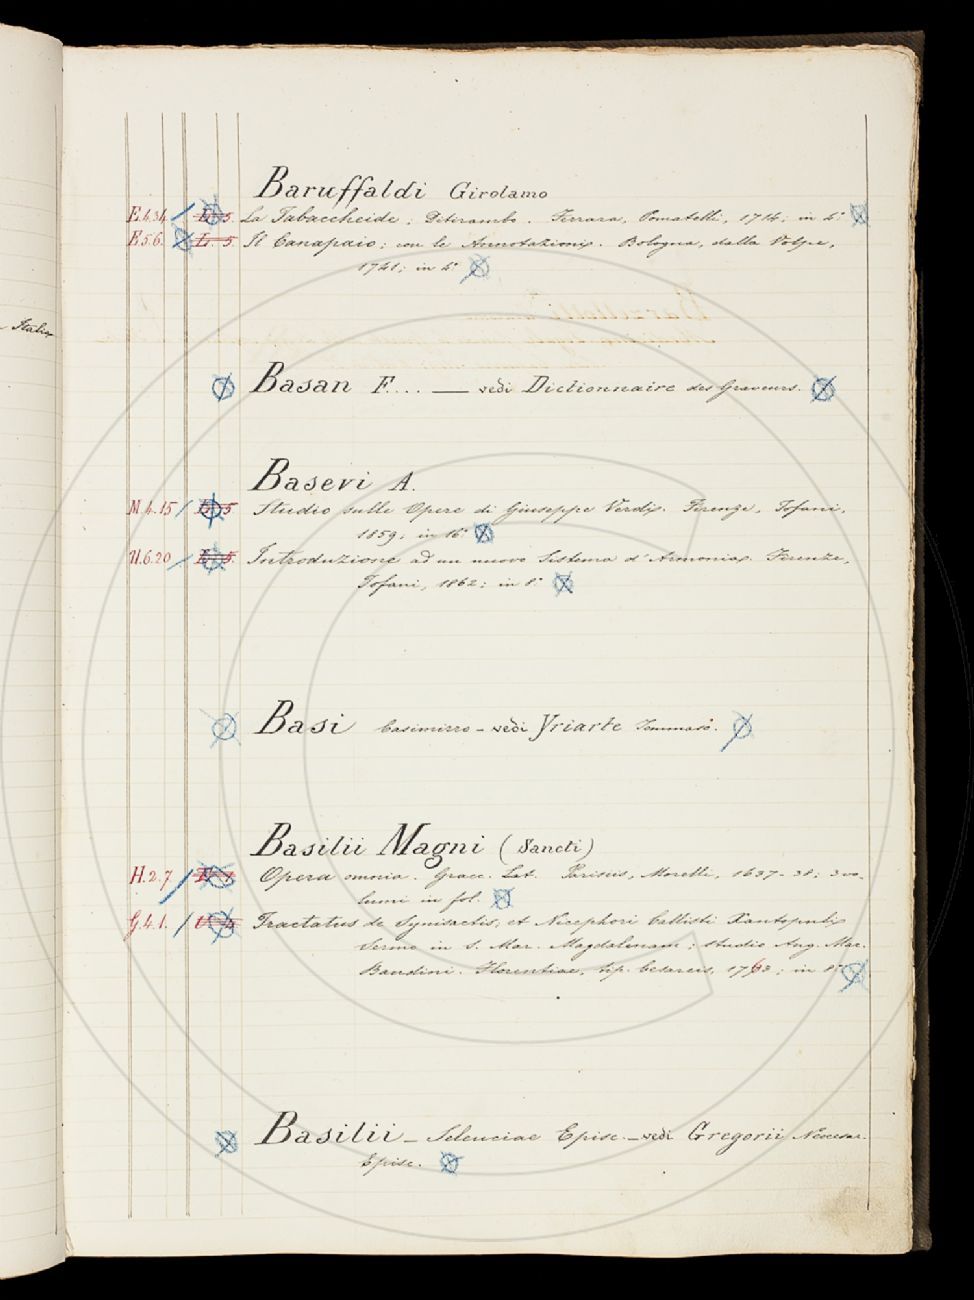 Italia
Baruffaldi Girolamo
E.4.34 La Tabaccheide; Ditirambo. Ferrara, Pomatelli, 1714; in 4°
E.5.6. L. 5 Il Canapaio; con le Annotazioni. Bologna, dalla Volpe,
1741; in 4°
Basan F.... — vedi Dictionnaire des Graveurs.
Basevi A.
M.4.15 Studio sulle Opere di Giuseppe Verdi. Firenze, Tofani,
1859; in 16°
U.6.20 Introduzione ad un nuovo Sistema d'Armonia. Firenze,
Tofani, 1862; in 8°
Basi Casimirro - vedi Yriarte Tommaso.
Basilii Magni (Sancti)
H.2.7 Opera omnia. Graec. Lat. Parisiis, Morelli, 1637-38; 3 vo-
lumi in fol.
G.4.1. Tractatus de Synisactis; et Nicephori Callisti Xantopuli
Sermo in S. Mar. Magdalenam; studio Ang. Mar.
Bandini. Florentiae, tip. Cesareis, 1763; in 8°
Basilii - Seleuciae Episc. - vedi Gregorii Neocesar.
Episc.